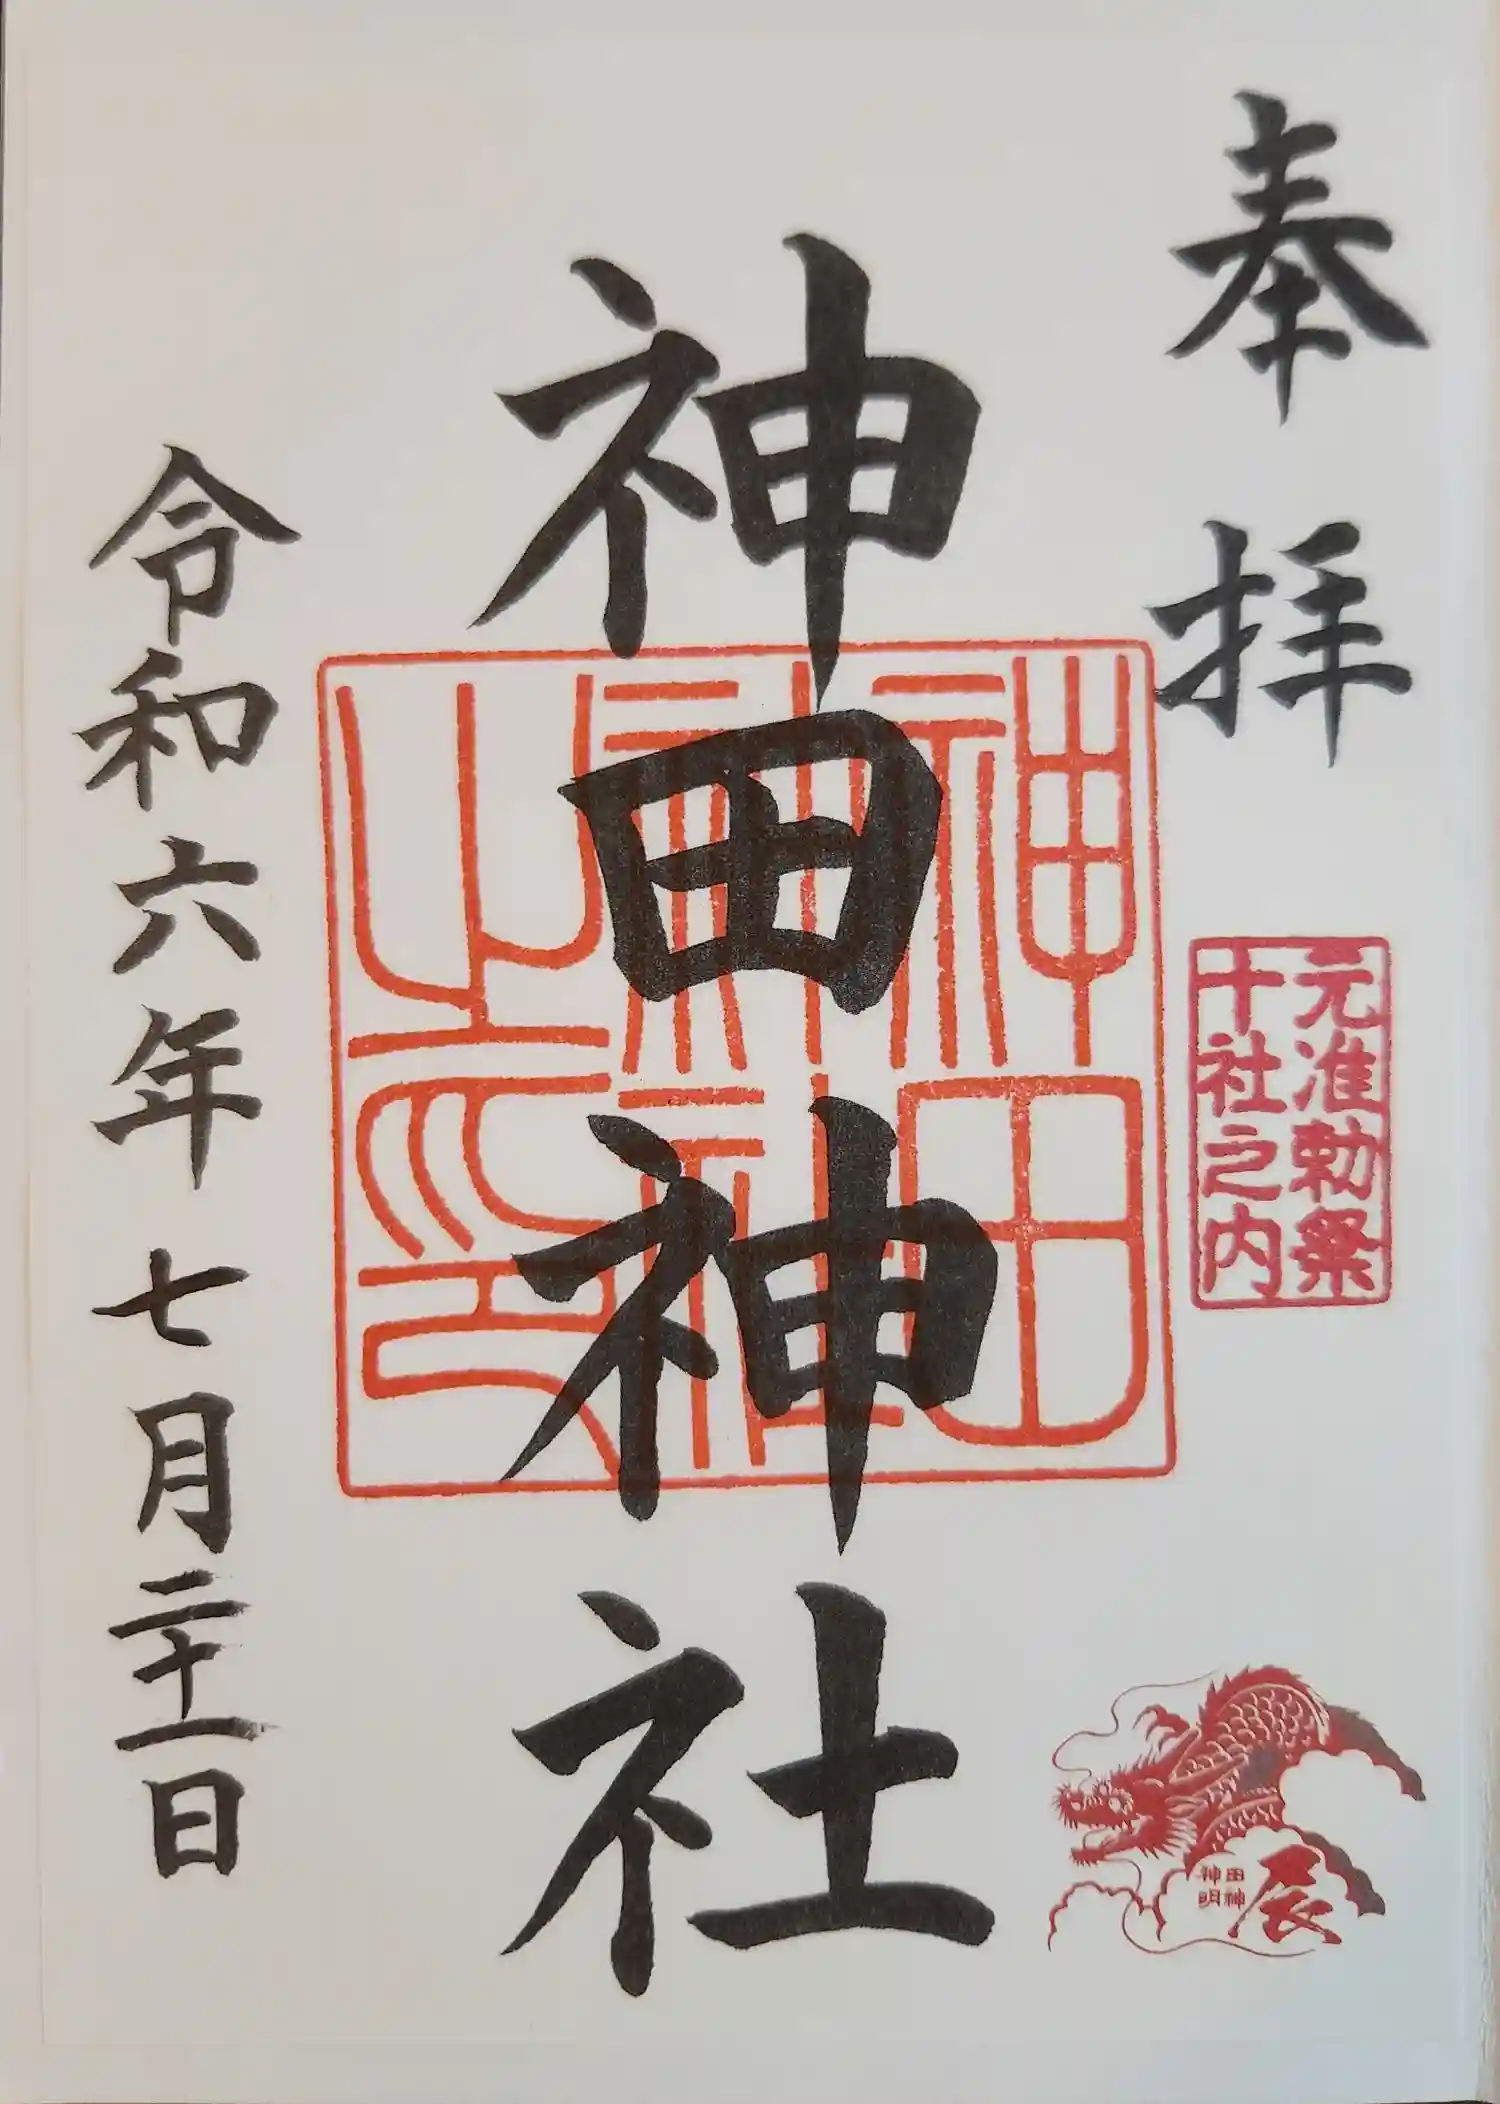 奉拝
元准勅祭
十社之内
神田神社
神田
神社
之印
令和六年七月二十一日
田神
神明
辰